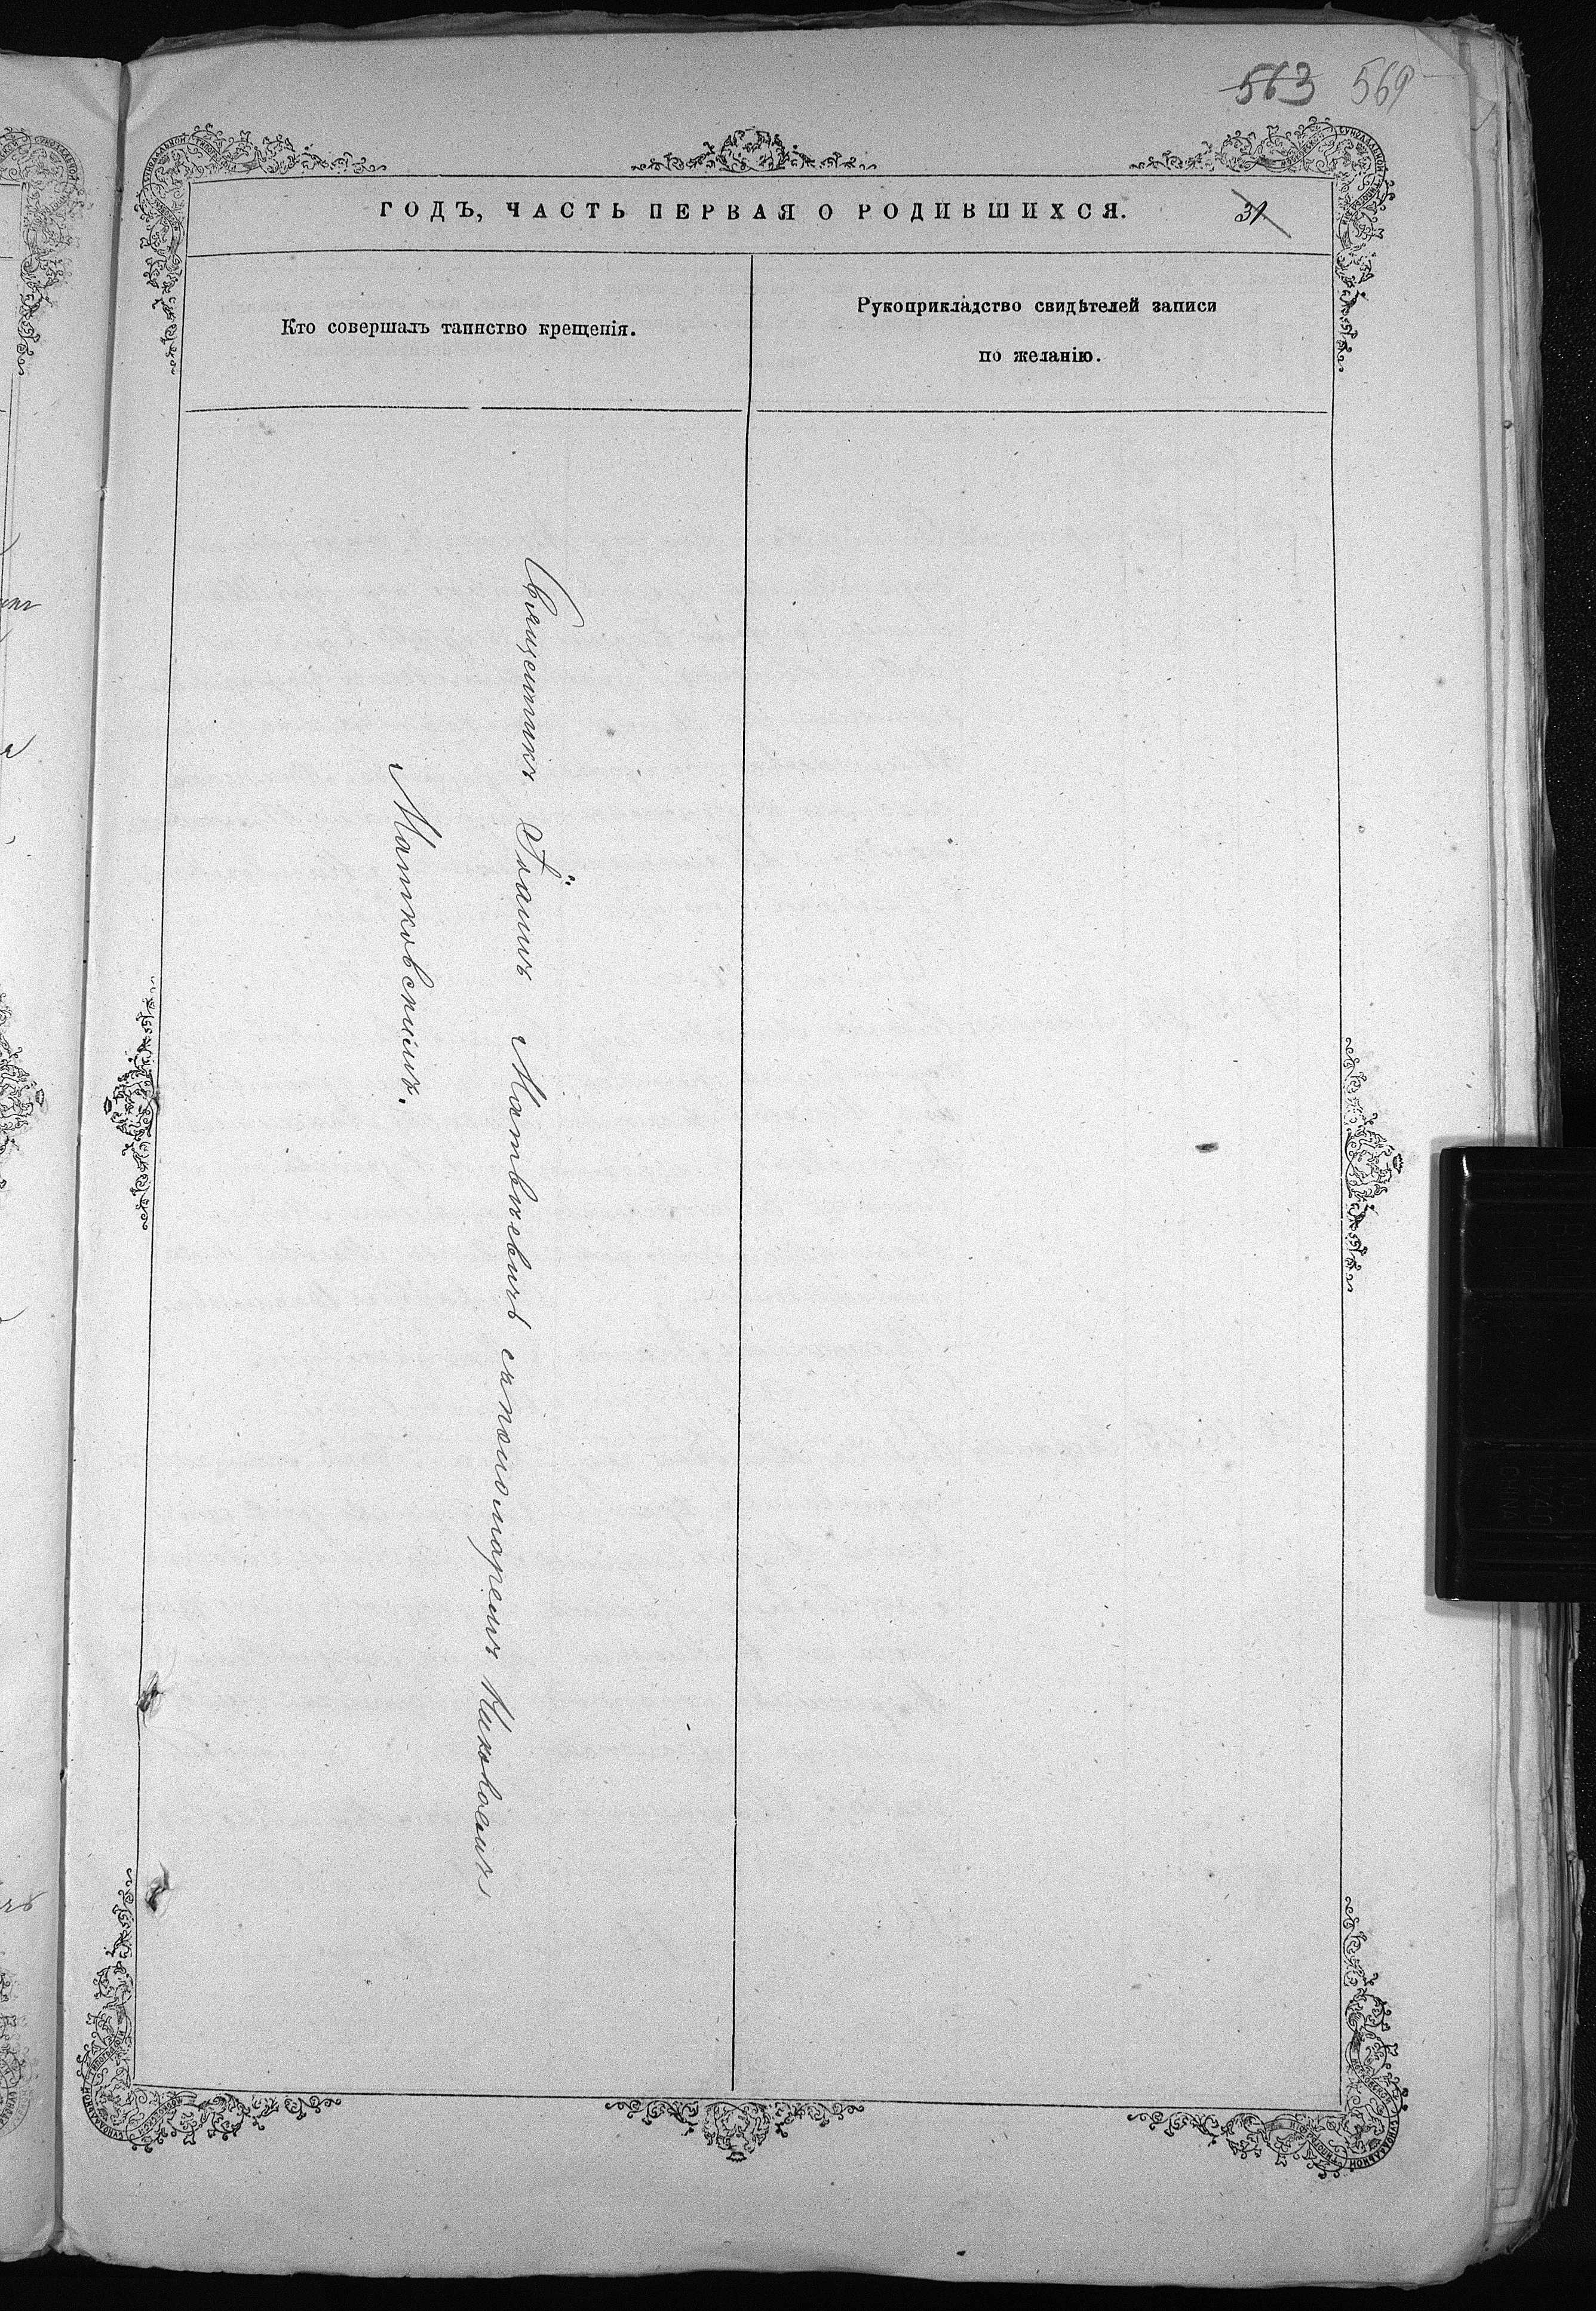 563 569
ГОДЪ, ЧАСТЬ ПЕРВАЯ О РОДИВШИХСЯ. 31
Кто совершалъ таинство крещенія.
Рукоприкладство свидѣтелей записи
по желанію.
Священникъ Іоаннъ Матвѣевичъ съ пономаремъ Николаемъ
Матковскимъ.